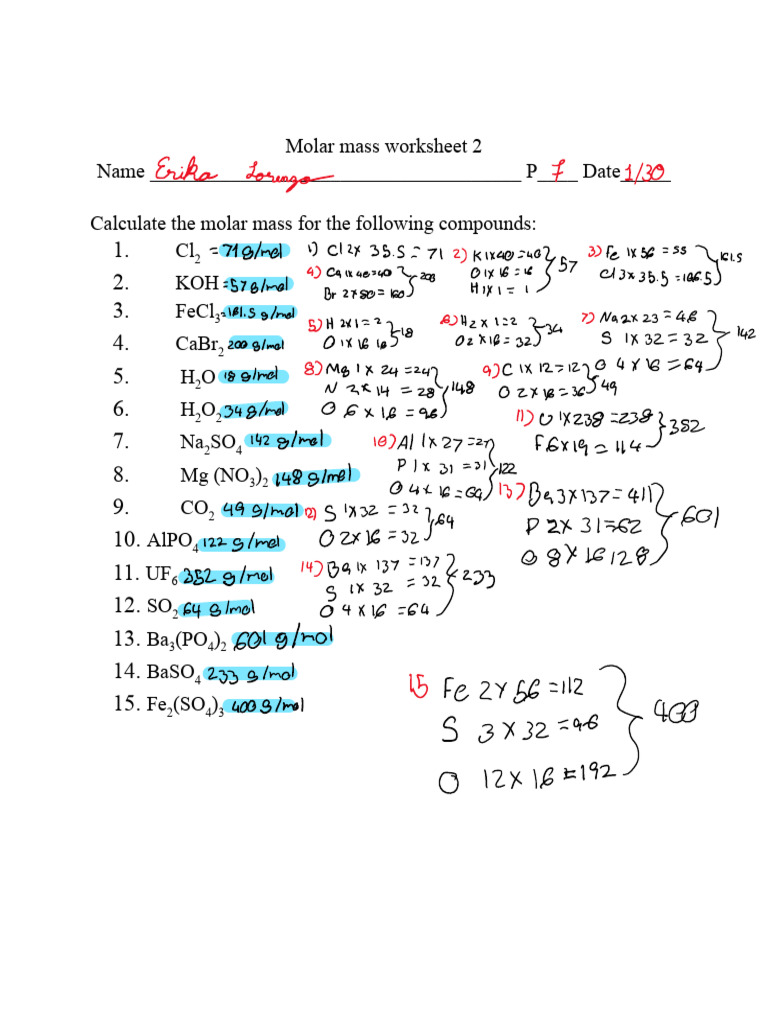 Molar mass worksheet 2
Name Erika Lorenzo P 7 Date 1/30
Calculate the molar mass for the following compounds:
1. Cl2 = 71 g/mol
2. KOH = 57 g/mol
3. FeCl3 = 161.5 g/mol
4. CaBr2 200 g/mol
5. H2O 18 g/mol
6. H2O2 34 g/mol
7. Na2SO4 142 g/mol
8. Mg (NO3)2 148 g/mol
9. CO2 49 g/mol
10. AlPO4 122 g/mol
11. UF6 352 g/mol
12. SO2 64 g/mol
13. Ba3(PO4)2 601 g/mol
14. BaSO4 233 g/mol
15. Fe2(SO4)3 400 g/mol
1) Cl 2x 35.5 = 71
2) K 1x40 = 40
O 1x 16 = 16
H 1x 1 = 1
57
3) Fe 1x 56 = 55
Cl 3x 35.5 = 106.5
161.5
4) Ca 1x 40 = 40
Br 2x80 = 160
200
5) H 2x1 = 2
O 1x16 16
18
6) H2 x 1 = 2
O 2 x16 = 32
34
7) Na 2x 23 = 46
S 1x 32 = 32
O 4 x 16 = 64
142
8) Mg 1 x 24 = 24
N 2 x 14 = 28
O 6 x 16 = 96
148
9) C 1x 12 = 12
O 2 x 16 = 36
49
10) Al 1x 27 = 27
P 1x 31 = 31
O 4x 16 = 64
122
11) U 1x238 = 238
F 6x19 = 114
382
12) S 1x32 = 32
O 2x16 = 32
64
13) Ba 3x137 = 411
P 2x 31 = 62
O 8x16 128
601
14) Ba 1x 137 = 137
S 1x 32 = 32
O 4 x16 = 64
233
15 Fe 2x56 = 112
S 3 x 32 = 96
O 12 x 16 = 192
400